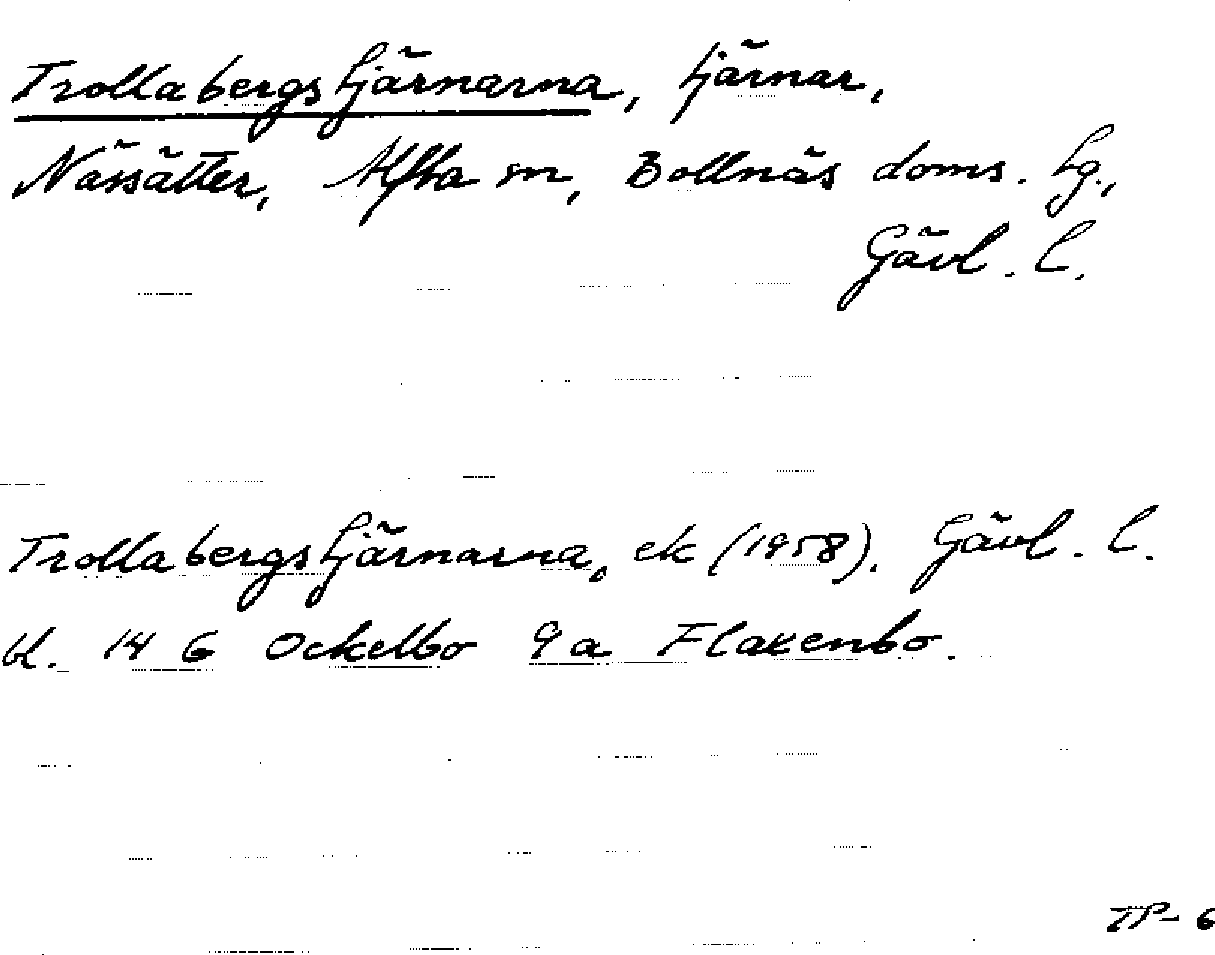 Trollabergstjärnarna, tjärnar,
Nässätter, Alfta sn, Bollnäs doms. tg.,
Gävl. l.
Trollabergstjärnarna, ek (1958). Gävl. l.
bl. 14 G Ockelbo 9 a Flaxenbo.
TP-6